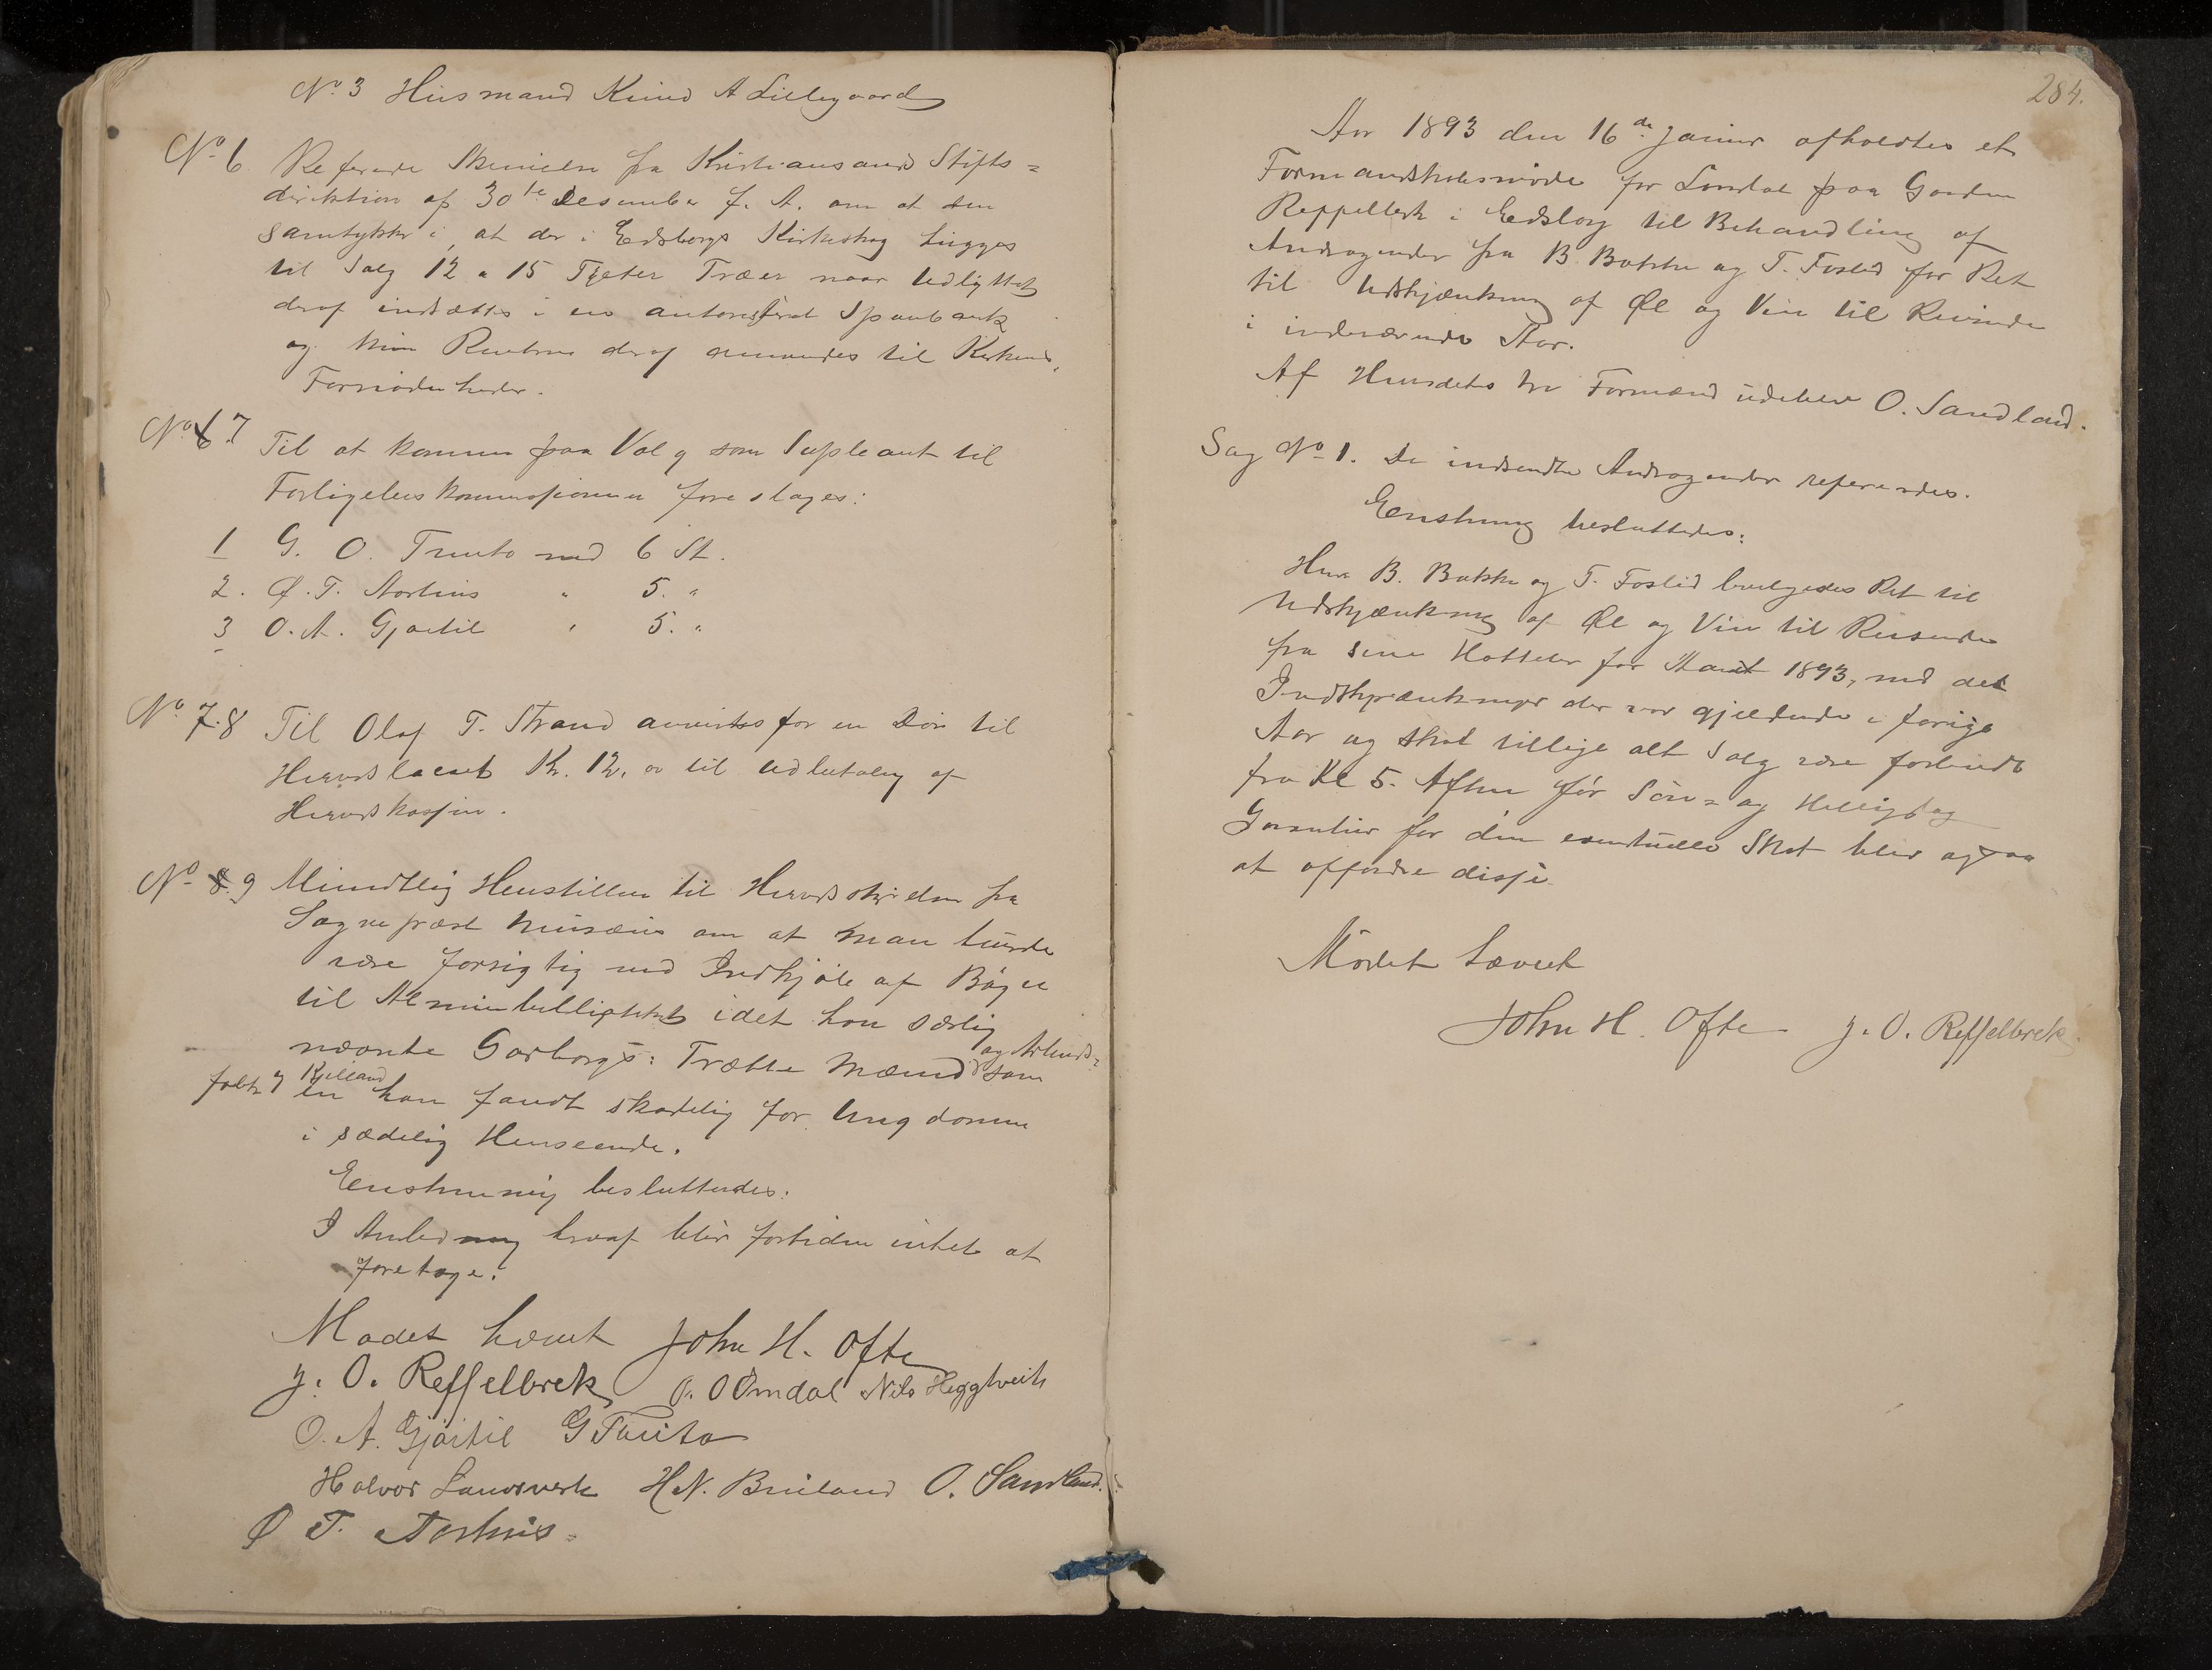 No 3 Husmand Knud A Lillegaard
No 6 Referede Skrivelse fra Kristiansands Stifts=
direktion af 30te Desember f. A. om at den
samtykker i, at der i Eidsborgs Kirkeskog hugges
til Salg 12 a 15 Tylter Træer naar Udbyttet
deraf indsættes i en autoriseret Sparebank
og kun Renterne deraf anvendes til Kirkens
Fornødenheder.
No 7 Til at komme paa Valg som Supleant til
Forligelseskommissionen foreslages:
1 G. O. Tveito med 6 St.
2. Ø. T. Aarhus " 5. "
3 O. A. Gjøitil " 5. "
No 7. 8 Til Olaf T. Strand anvistes for en Dør til
Herredslocalet Kr. 12,00 til Udbetaling af
Herredskassen.
No 8. 9 Mundtlig Henstillen til Herredstyrelsen fra
Sogneprest Musæus om at man burde
være forsigtig med Indkjøb af Bøger
til Almuebibliotheket idet han særlig
nævnte Garborgs: Trætte Mænd og Arbeids=
folk af Kielland som
en han fandt skadelig for Ungdommen
i sædelig Henseende.
Eenstemmig besluttedes:
I Anledning hvoraf blir fortiden intet at
foretage.
Mødet hævet John H. Ofte
J. O. Reppelbrek O. O Omdal Nils Heggtveit
O. A. Gjøitil G Tveito
Halvor Landsverk H N. Bruland O. Sandland.
Ø T. Aarhus
284.
Aar 1893 den 16de Januar afholdtes et
Formandskabsmøde for Laardal paa Gaarden
Reppelbrek i Eidsborg til Behandling af
Andragender fra B. Bakke og T. Foslid for Ret
til Udskjænkning af Øl og Vin til Reisende
i indeværende Aar.
Af Herredets Formænd udeblev O. Sandland.
Sag No 1. De indsendte Andragender refereredes.
Eenstemmig besluttedes:
Herr B. Bakke og T. Foslid bevilgedes Ret til
Udskjænkning af Øl og Vin til Reisende
fra sine Hotteler for Aaret 1893, med de
Indskrænkninger der var gjældende i forrige
Aar og skal tillige alt Salg være forbudt
fra Kl 5. Aften før Søn= og Helligdag
Garantier for den eventuelle Skat blir ogsaa
at affordre disse.
Mødet hævet
John H. Ofte J. O. Reppelbrek